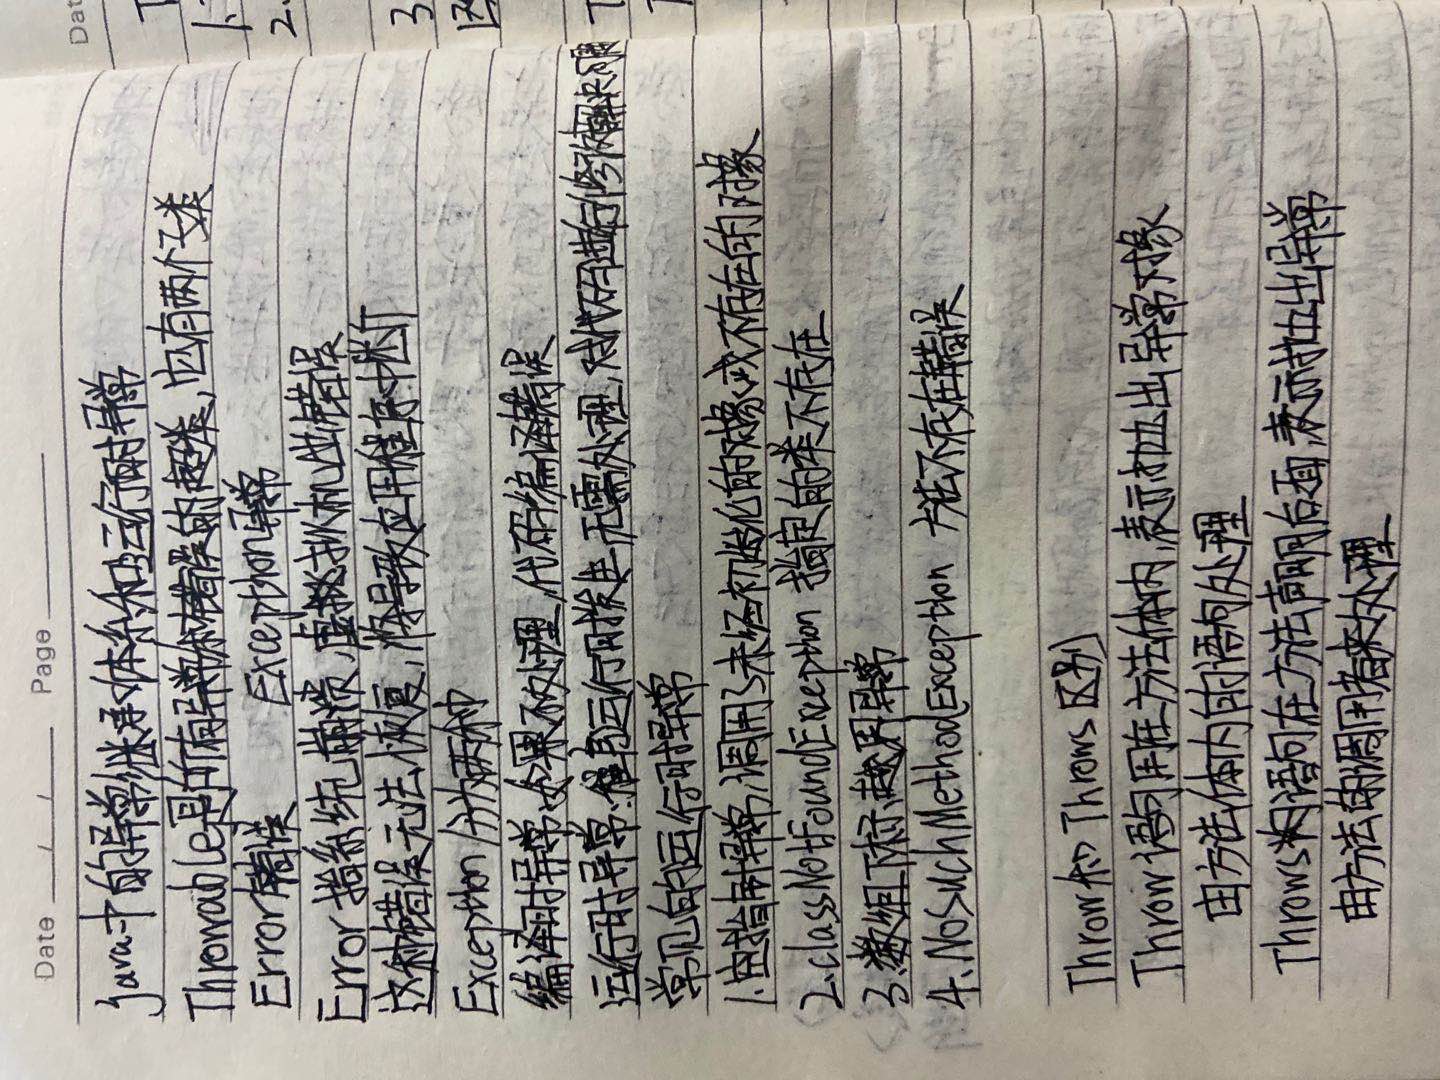 Date / / Page
java中的异常继承体系和运行时异常
Throwable是所有异常和错误的超类,它有两个子类
Error错误 Exception异常
Error指系统崩溃,虚拟机出错误
这种错误无法恢复,将导致应用程序中断
Exception分为两种
编译时异常:如果不处理,代码编译错误
运行时异常:程序运行时发生,无需处理,对代码进行修改解决问题
常见的运行时异常
1.空指针异常,调用了未经初始化的对象或不存在的对象
2.classNotFoundException 指定的类不存在
3.数组下标越界异常
4.NoSuchMethodException 方法不存在错误
Throw和Throws区别
Throw语句用在方法体内,表示抛出异常对象
由方法体内的语句处理
Throws语句在方法声明后面,表示抛出异常
由方法的调用者来处理
Dat
1.
2.
3